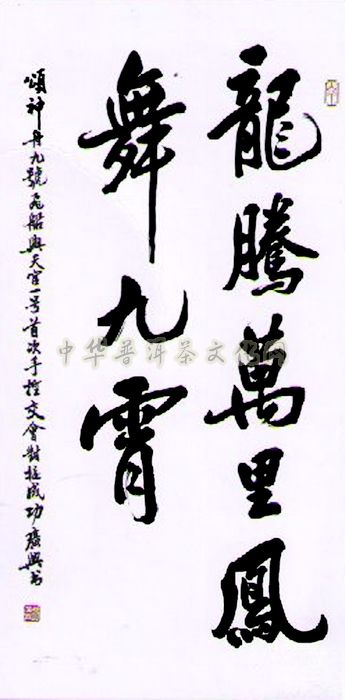 龍騰萬里鳳
舞九霄
頌神舟九號飛船與天宮一号首次手控交會對接成功 廣興书
中华普洱茶文化网